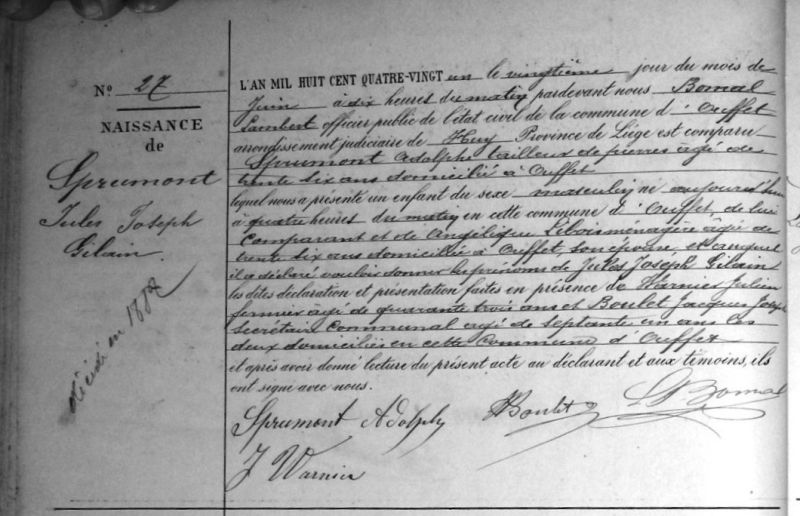 N° 27
NAISSANCE
de
Sprumont
Jules Joseph
Gilain.
décédé en 1882
L'AN MIL HUIT CENT QUATRE-VINGT un le vingtième jour du mois de
Juin à dix heures du matin pardevant nous Bomal
Lambert officier public de l'état civil de la commune d'Ouffet
arrondissement judiciaire de Huy Province de Liége est comparu
Sprumont Adolphe tailleur de pierres agé de
trente six ans domicilié à Ouffet
lequel nous a présenté un enfant du sexe masculin né aujourd'hui
à quatre heures du matin en cette commune d'Ouffet, de lui
Comparant et de Angélique Libois ménagère agée de
trente six ans domiciliée à Ouffet, son épouse et auquel
il a déclaré vouloir donner les prénoms de Jules Joseph Gilain
les dites déclaration et présentation faites en présence de Warnier Julien
fermier agé de quarante trois ans et Boulet Jacques Joseph
Secrétaire Communal agé de septante un ans les
deux domiciliés en cette Commune d'Ouffet
et après avoir donné lecture du présent acte au déclarant et aux témoins, ils
ont signé avec nous.
Sprumont Adolphe Boulet L Bomal
J Warnier